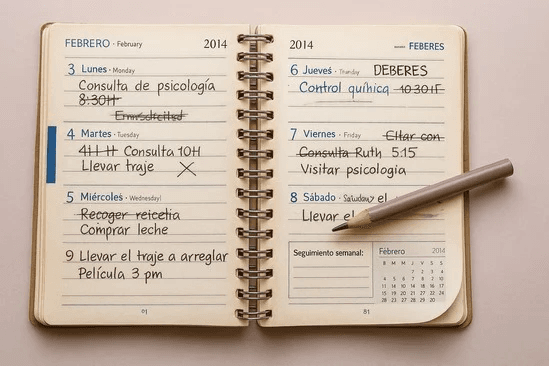 FEBRERO · February 2014
3 Lunes · Monday
Consulta de psicología
8:30H
4 Martes · Tuesday
Consulta 10H
Llevar traje
5 Miércoles · Wednesday
Recoger reicetia
Comprar leche
9 Llevar el traje a arreglar
Película 3 pm
2014 FEBERES
6 Jueves · DEBERES
Control química 10:30
7 Viernes · Friday Citar con
Consulta Ruth 5:15
Visitar psicología
8 Sábado · el
Llevar el
Seguimiento semanal:
Febrero 2014
81